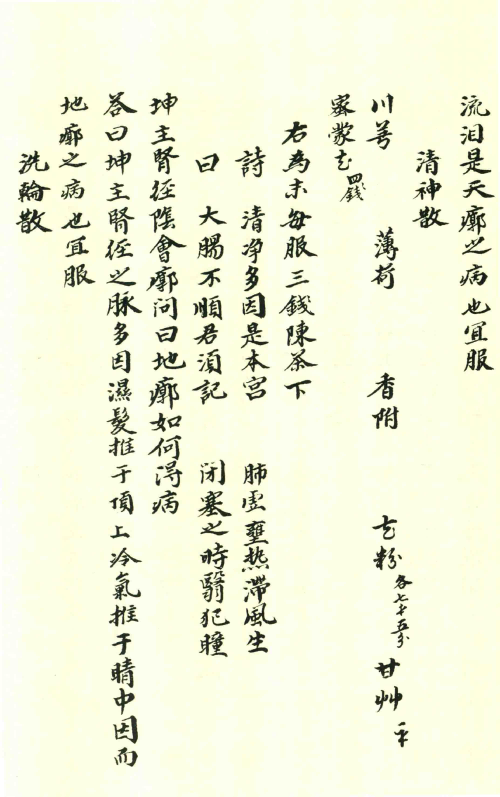 流泪是天廓之病也宜服
清神散
川芎 薄荷 香附 花粉 各七五分 甘艸
密蒙花 四錢
右為末每服三錢陳茶下
詩 清净多因是本宫 肺虚壅热滯風生
曰 大腸不順君須記 闭塞之時翳犯瞳
坤主腎经陰會廓问曰地廓如何淂病
荅曰坤主腎经之脉多因濕髮推于頂上冷氣推于睛中因而
地廓之病也宜服
洗輪散